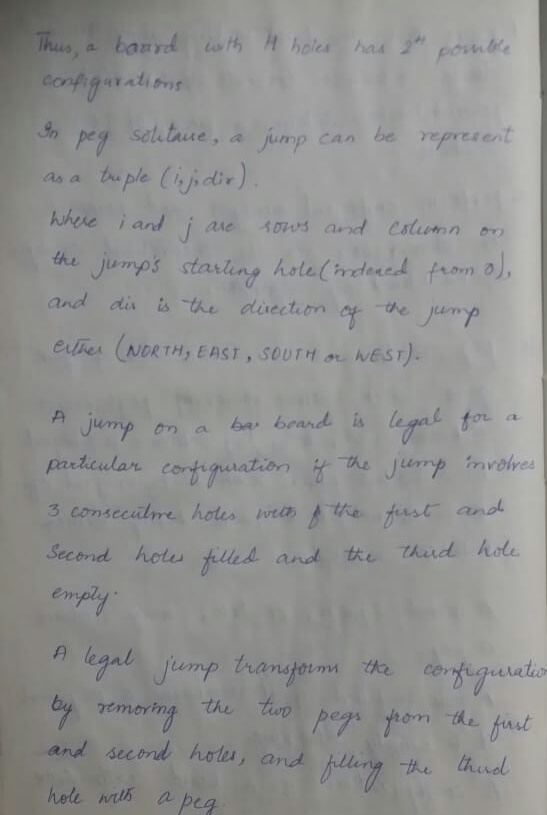 Thus, a board with H holes has 2^H possible
configurations.
In peg solitaire, a jump can be represent
as a triple (i,j,dir).
Where i and j are rows and column on
the jump's starting hole (indexed from 0),
and dir is the direction of the jump
either (NORTH, EAST, SOUTH or WEST).
A jump on a board is legal for a
particular configuration if the jump involves
3 consecutive holes with the first and
Second holes filled and the third hole
empty.
A legal jump transforms the configuratio
by removing the two pegs from the first
and second holes, and filling the third
hole with a peg.